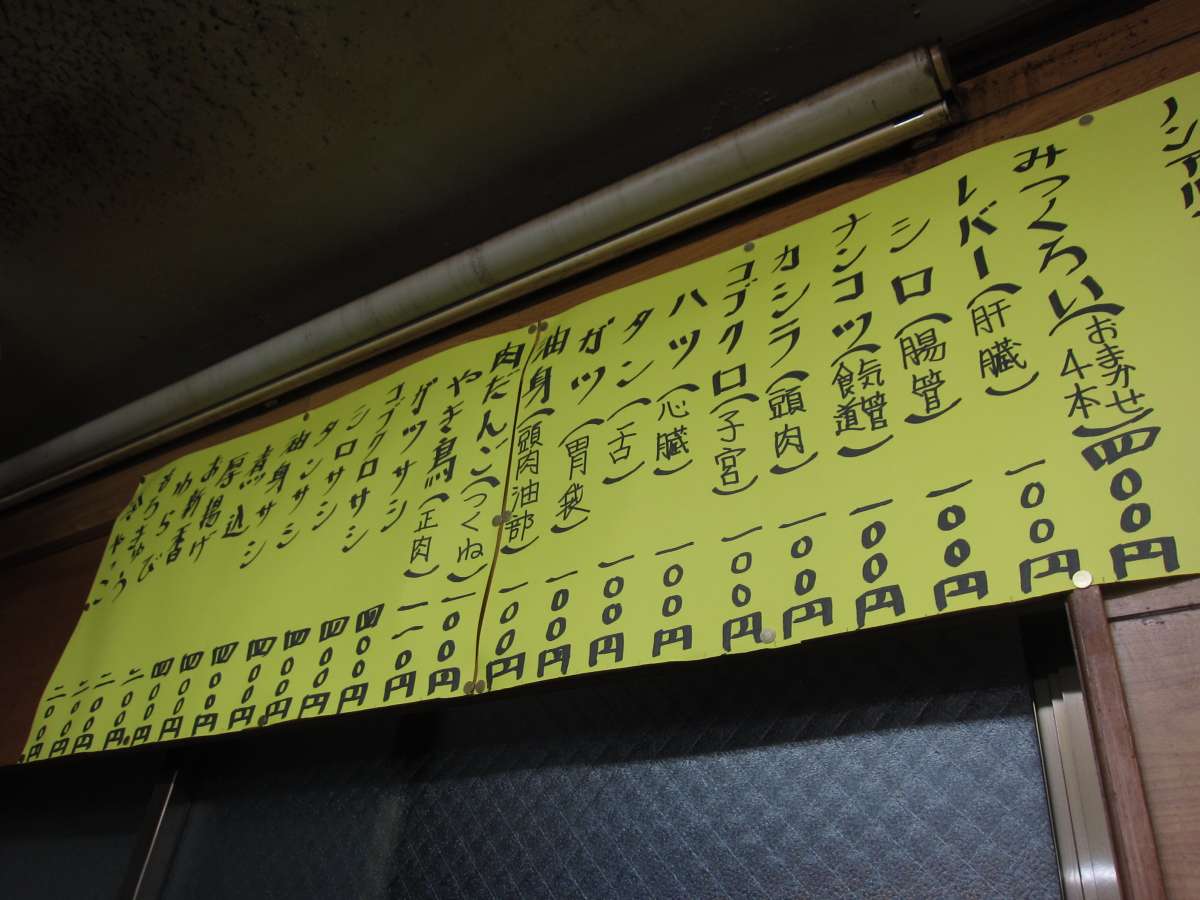 ノンアル
みつくろい(おまかせ4本)四〇〇円
レバー(肝臓)一〇〇円
シロ(腸管)一〇〇円
ナンコツ(気管食道)一〇〇円
カシラ(頭肉)一〇〇円
コブクロ(子宮)一〇〇円
ハツ(心臓)一〇〇円
タン(舌)一〇〇円
ガツ(胃袋)一〇〇円
油身(頭肉油部)一〇〇円
肉だんご(つくね)一〇〇円
やき鳥(正肉)一一〇円
ガツサシ 四〇〇円
コブクロサシ 四〇〇円
シロサシ 四〇〇円
タンサシ 四〇〇円
油身サシ 四〇〇円
煮込 四〇〇円
厚揚げ 四〇〇円
お新香 二〇〇円
わらび 二〇〇円
二〇〇円
二〇〇円